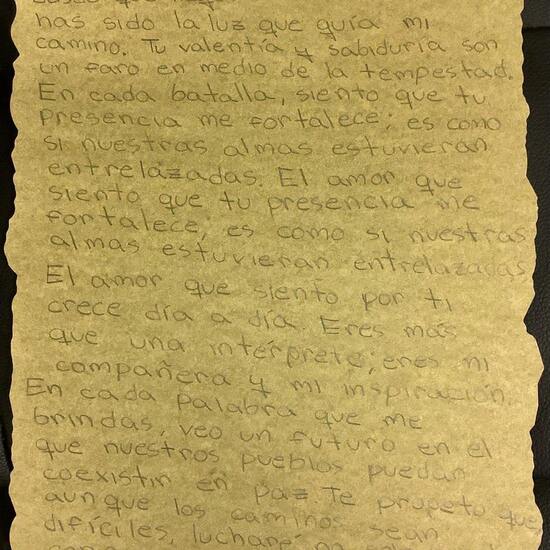 has sido la luz que guía mi
camino. Tu valentía y sabiduría son
un faro en medio de la tempestad.
En cada batalla, siento que tu
presencia me fortalece; es como
si nuestras almas estuvieran
entrelazadas. El amor que
siento que tu presencia me
fortalece, es como si nuestras
almas estuvieran entrelazadas
El amor que siento por ti
crece día a día. Eres más
que una intérprete; eres mi
compañera y mi inspiración.
En cada palabra que me
brindas, veo un futuro en el
que nuestros pueblos puedan
coexistir en paz. Te prupeto que
aunque los caminos sean
difíciles, lucharé